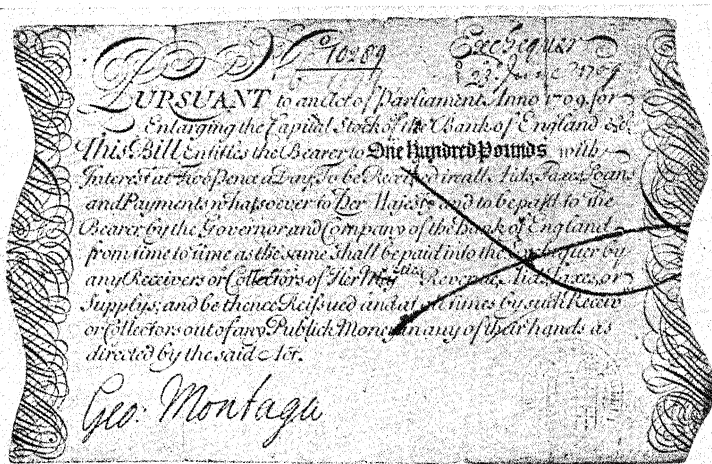 No 10289 Exchequer
23 June 1709
PURSUANT to an Act of Parliament Anno 1709. for
Enlarging the Capital Stock of the Bank of England &c.
This Bill Entitles the Bearer to One Hundred Pounds with
Interest at Two Pence a Day, To be Received in all Aids, Taxes, Loans
and Payments whatsoever to Her Majesty and to be paid to the
Bearer by the Governor and Company of the Bank of England
from time to time as the same shall be paid into the Exchequer by
any Receivers or Collectors of Her Majties Revenue, Aids, Taxes, or
Supplys, and be thence Reissued and at all times by such Receivrs
or Collectors out of any Publick Money in any of their hands as
directed by the said Act.
Geo: Montagu